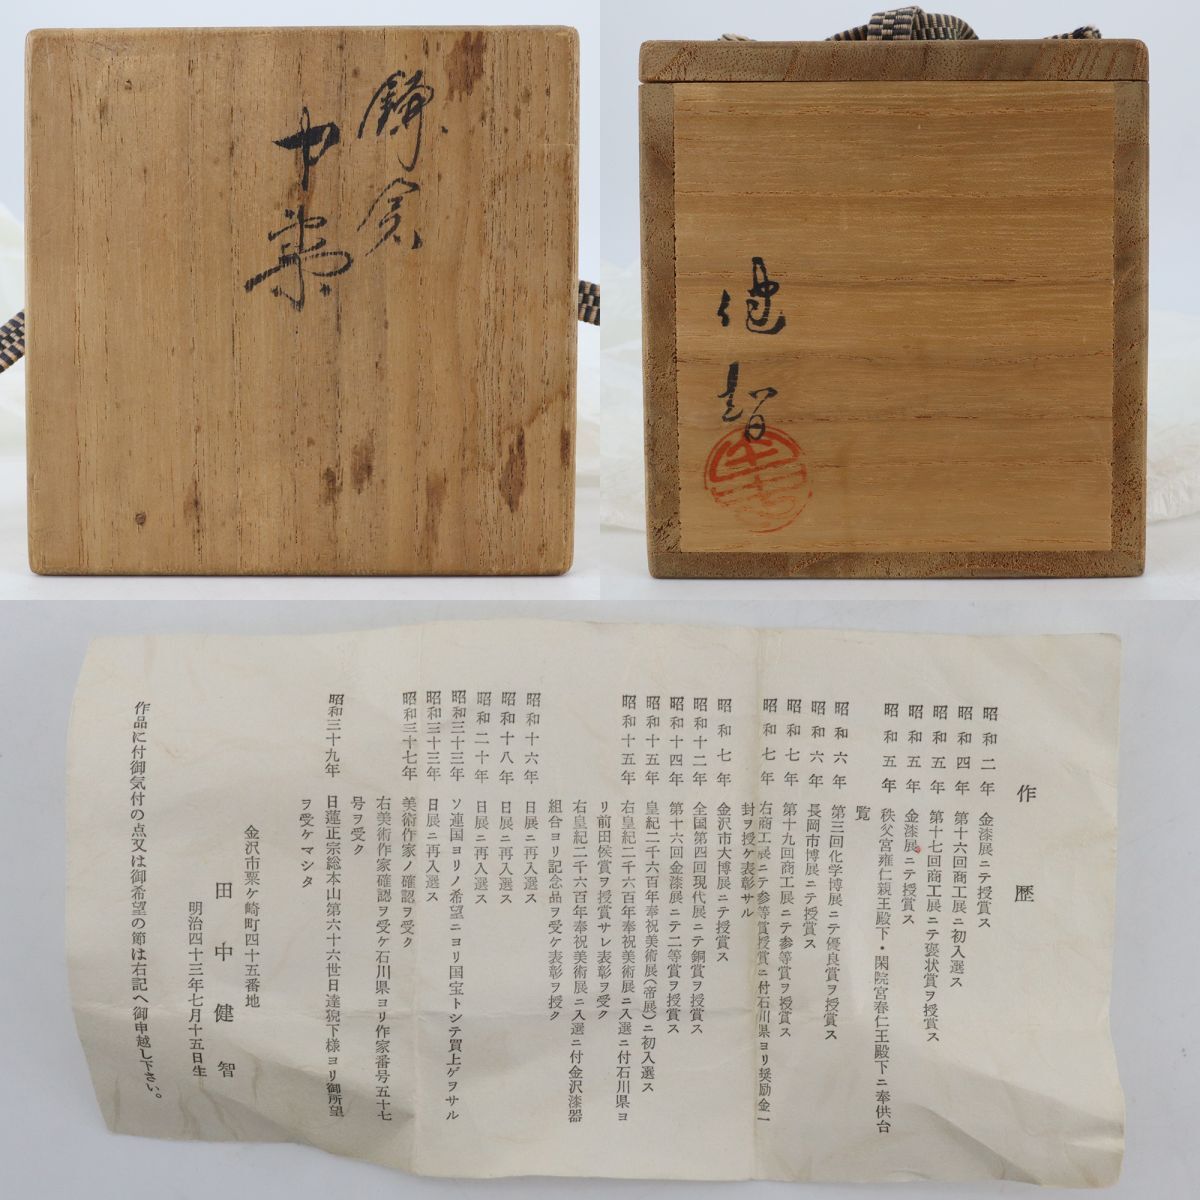 鎌倉
中棗
健智
作歴
昭和二年 金漆展ニテ授賞ス
昭和四年 第十六回商工展ニ初入選ス
昭和五年 第十七回商工展ニテ褒状賞ヲ授賞ス
昭和五年 金漆展ニテ授賞ス
昭和五年 秩父宮雍仁親王殿下・閑院宮春仁王殿下ニ奉供台
覧
昭和六年 第三回化学博展ニテ優良賞ヲ授賞ス
昭和六年 長岡市博展ニテ授賞ス
昭和七年 第十九回商工展ニテ参等賞ヲ授賞ス
昭和七年 右商工展ニテ参等賞授賞ニ付石川県ヨリ奨励金一
封ヲ授ケ表彰サル
昭和七年 金沢市大博展ニテ授賞ス
昭和十二年 全国第四回現代展ニテ銅賞ヲ授賞ス
昭和十四年 第十六回金漆展ニテ二等賞ヲ授賞ス
昭和十五年 皇紀二千六百年奉祝美術展(帝展)ニ初入選ス
昭和十五年 右皇紀二千六百年奉祝美術展ニ入選ニ付石川県ヨ
リ前田侯賞ヲ授賞サレ表彰ヲ受ク
右皇紀二千六百年奉祝美術展ニ入選ニ付金沢漆器
組合ヨリ記念品ヲ受ケ表彰ヲ授ク
昭和十六年 日展ニ再入選ス
昭和十八年 日展ニ再入選ス
昭和二十年 日展ニ再入選ス
昭和三十三年 ソ連国ヨリノ希望ニヨリ国宝トシテ買上ゲヲサル
昭和三十三年 日展ニ再入選ス
昭和三十七年 美術作家ノ確認ヲ受ク
右美術作家確認ヲ受ケ石川県ヨリ作家番号五十七
号ヲ受ク
昭和三十九年 日蓮正宗総本山第六十六世日達猊下様ヨリ御所望
ヲ受ケマシタ
金沢市粟ケ崎町四十五番地
田中健智
明治四十三年七月十五日生
作品に付御気付の点又は御希望の節は右記へ御申越し下さい。